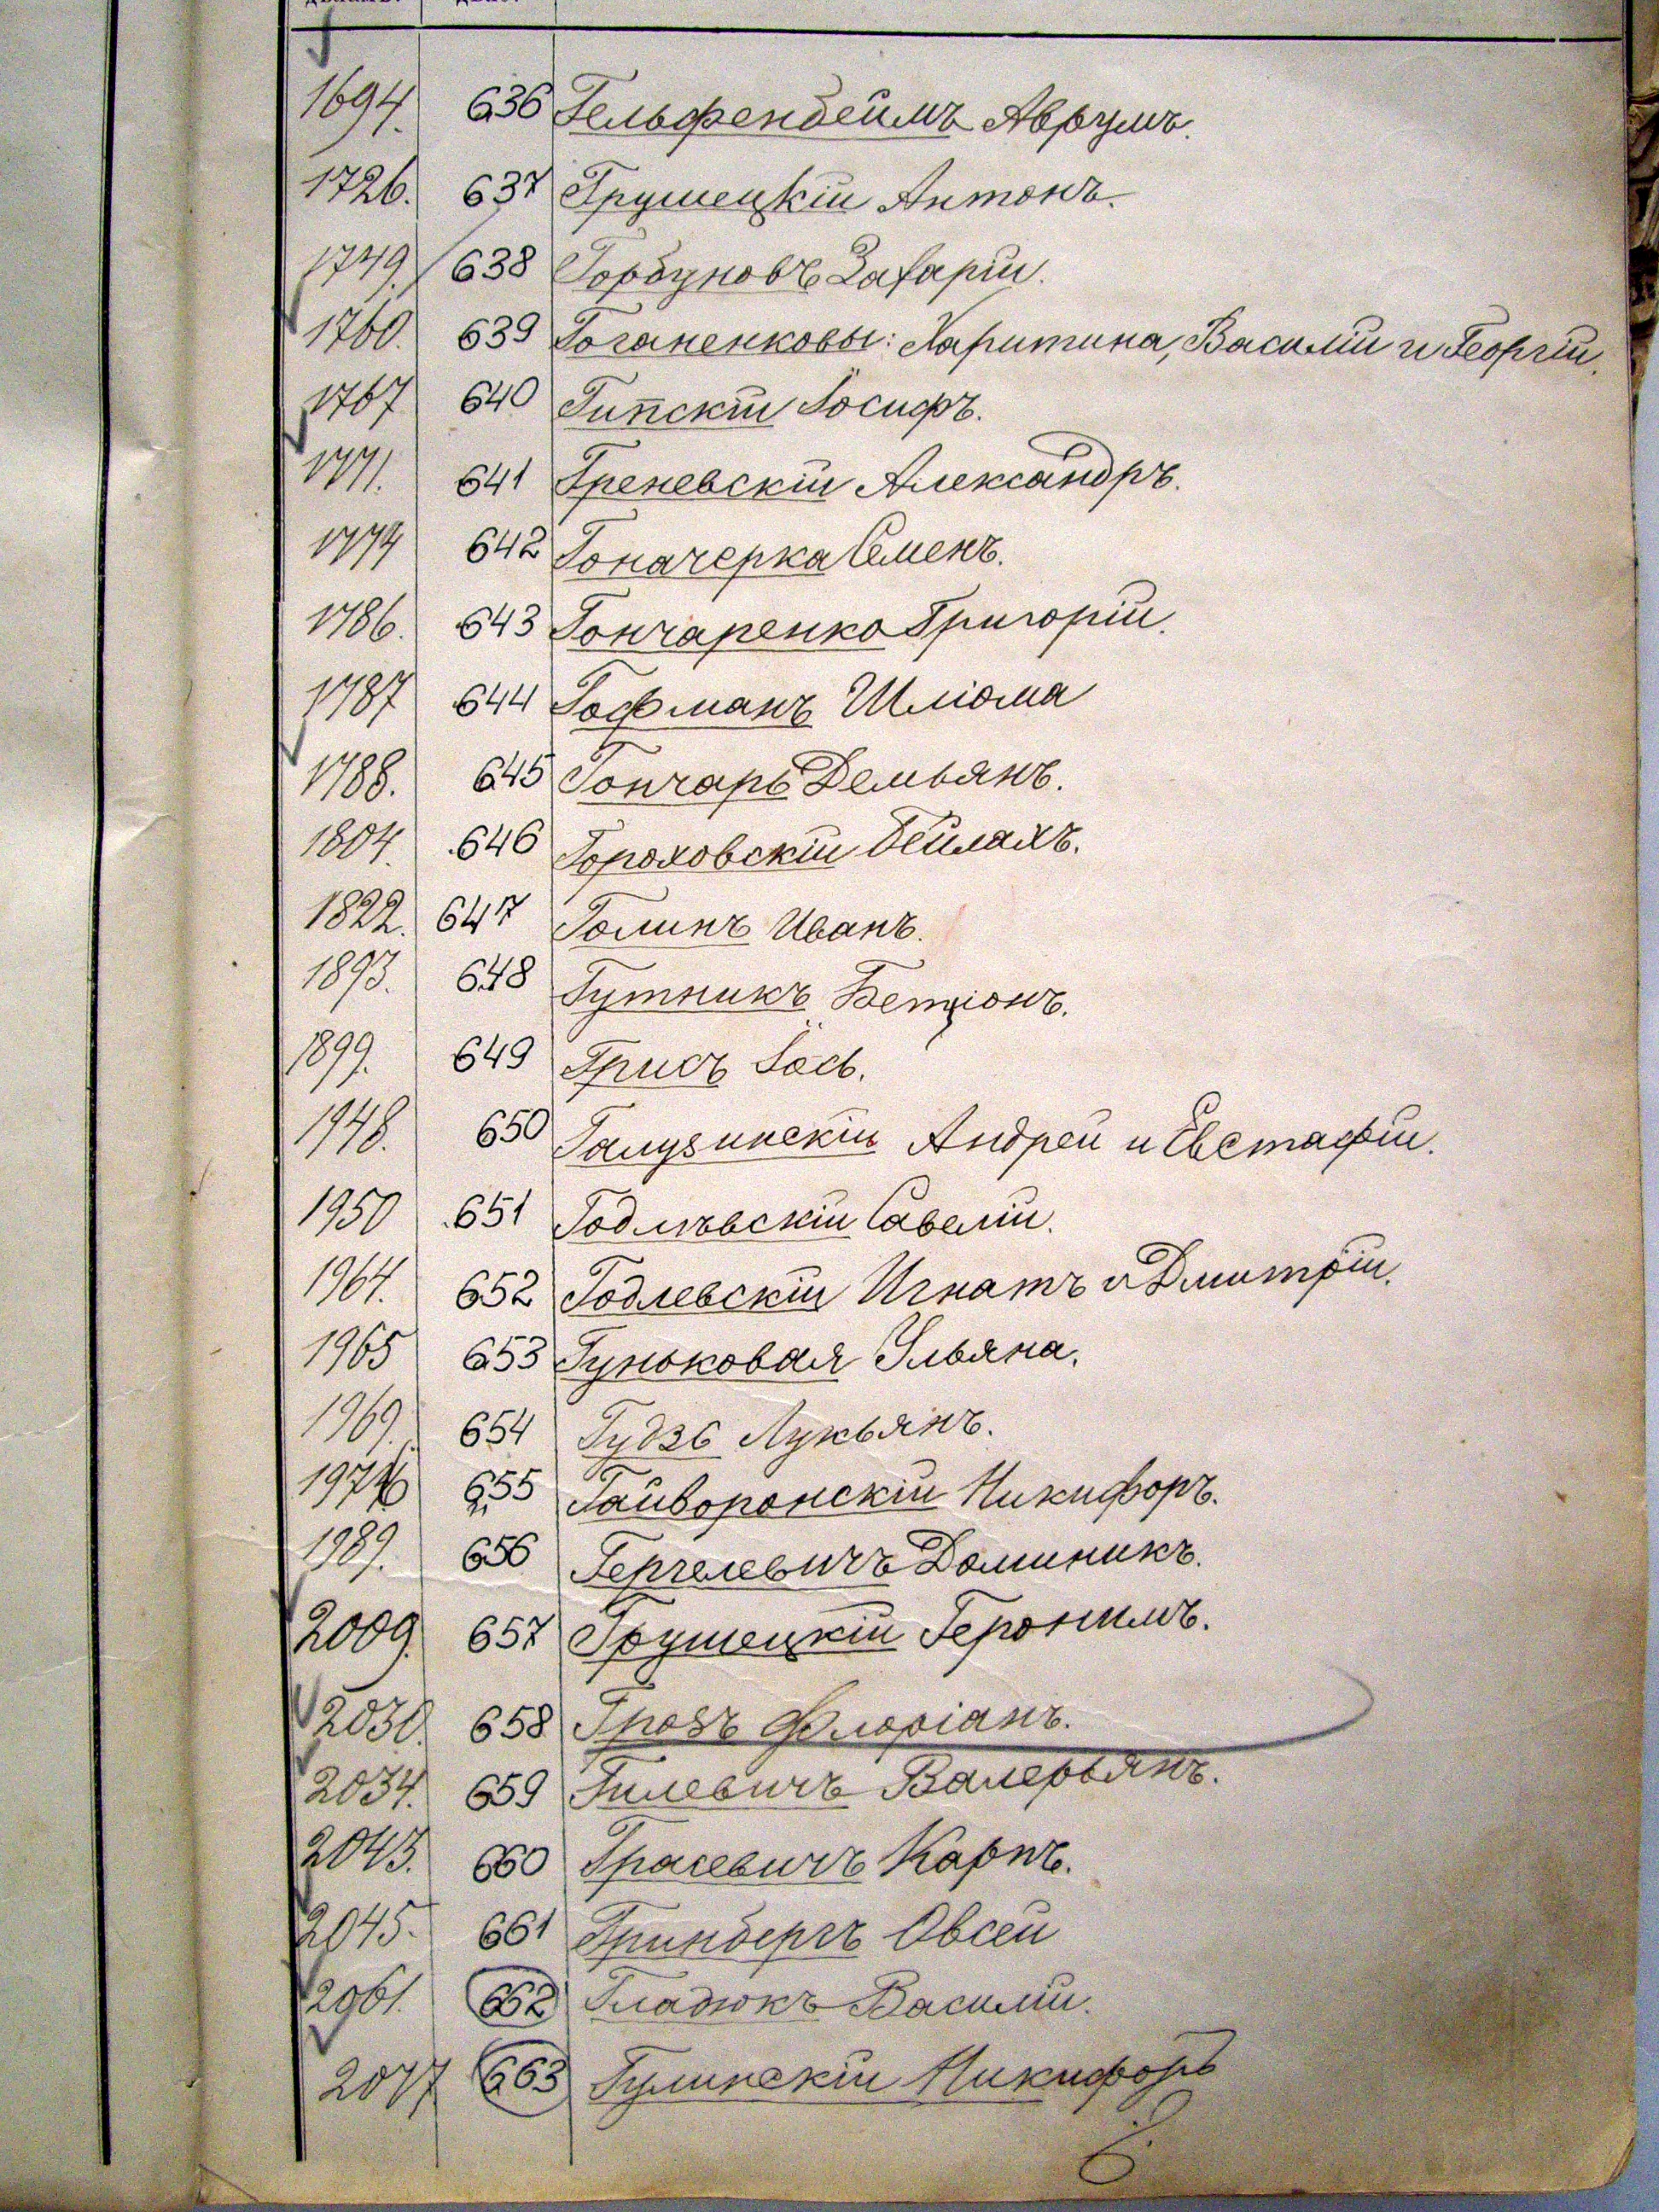 1694. 636 Гельфенбеймъ Аврумъ.
1726. 637 Грушецкій Антонъ.
1749. 638 Горбуновъ Захарій.
1760. 639 Гоганенковы: Харитина, Василій и Георгій.
1767 640 Гипскій Іосифъ.
1771. 641 Греневскій Александръ.
1774 642 Гоначерка Семенъ.
1786. 643 Гончаренко Григорій.
1787 644 Гофманъ Шліома
1788. 645 Гончаръ Демьянъ.
1804. 646 Гороховскій Бейлахъ.
1822. 647 Голинъ Иванъ.
1893. 648 Гутникъ Бетціонъ.
1899. 649 Грисъ Іось.
1948. 650 Галузинскій Андрей и Евстафій.
1950 651 Годлѣвскій Савелій.
1964. 652 Годлевскій Игнатъ и Дмитрій.
1965 653 Гуньковая Ульяна.
1969. 654 Гудзь Лукьянъ.
655 Гайворонскій Никифоръ.
1989. 656 Гергелевичъ Доминикъ.
2009. 657 Грушецкій Геронимъ.
2030. 658 Грозъ Флоріанъ.
2034. 659 Гилевичъ Валерьянъ.
2043. 660 Грасевичъ Карпъ.
2045. 661 Гринбергъ Овсей
2061. 662 Гладюкъ Василій.
2077 663 Гулинскій Никифоръ